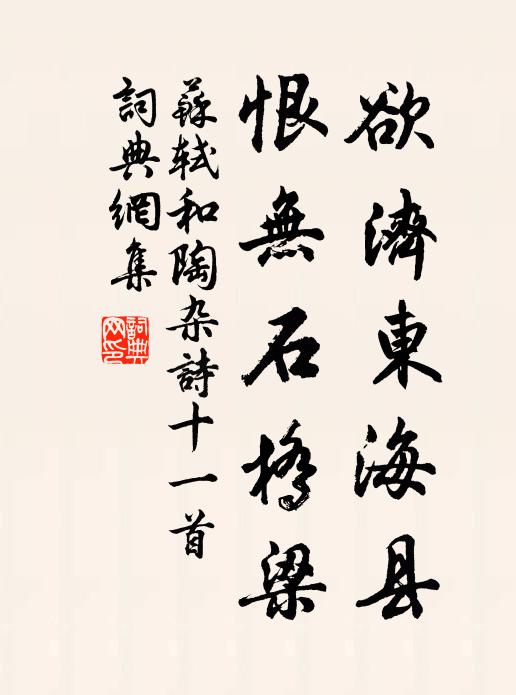 欲濟東海县
恨無石橋梁
蘇軾和陶杂詩十一首
詞典網集
詞典網印